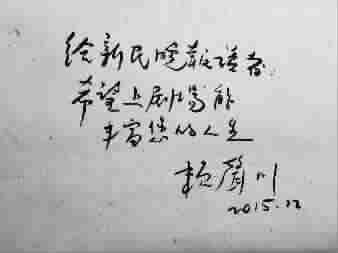 给新民晚报读者
希望上剧场能
丰富您的人生
赖声川
2015.12